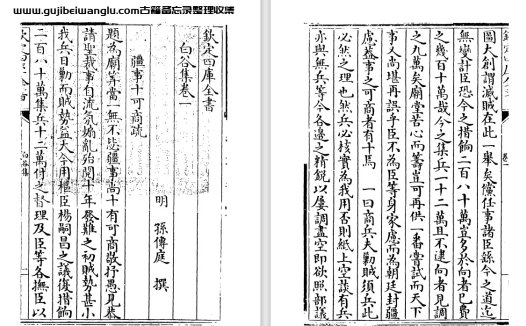 www.gujibeiwanglu.com古籍备忘录整理收集
欽定四庫全書
白谷集卷一
明 孫傳庭 撰
疆事十可商疏
題為廟筭當一無不遠疆事尚十有可商敬抒愚見懇
請聖裁事自流氛煽亂殆閱十年發難之初賊勢甚小
我兵日勦而賊勢益大今用樞臣楊嗣昌之議復措餉
二百八十萬集兵十二萬併之督理及臣等各撫臣以
白谷集
圖大創謂滅賊在此一舉矣儻任事諸臣繇今之道迄
無變計臣恐今之措餉二百八十萬豈多於向者已費
之幾百十萬哉今之集兵一十二萬且不逮向者見調
之九萬矣廟堂苦心而籌豈可再供一番嘗試而天下
事人尚堪再誤乎臣不為臣等身家慮而為朝廷封疆
慮蓋事之可商者有十焉 一曰商兵夫勦賊須兵此
必然之理也然兵必核實為我用否則紙上空談有兵
亦與無兵等今各邊之精銳以屢調盡空即欲照部議